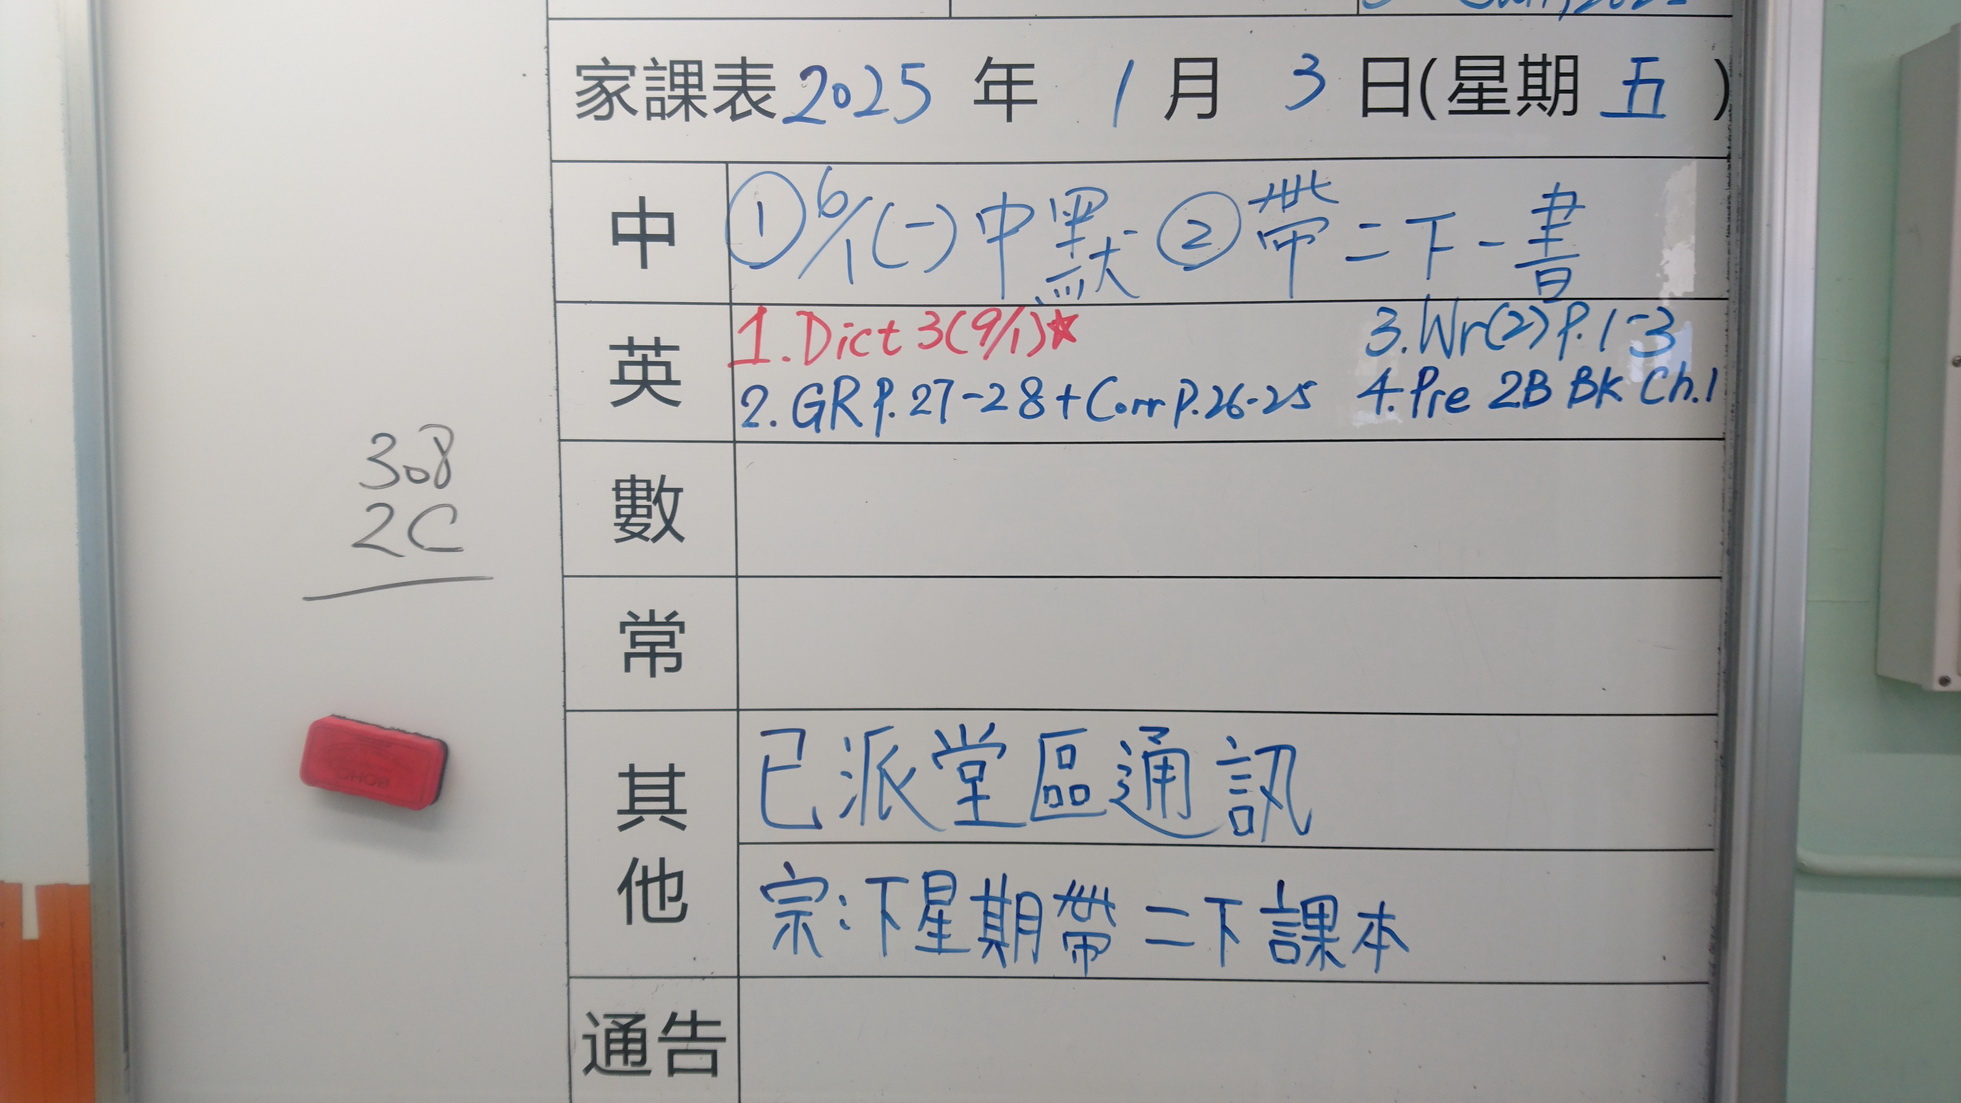 家課表2025年 1月 3日(星期五)
中 ①6/1(一)中默 ②帶二下一書
英 1.Dict 3(9/1)★ 3.Wr(2)P.1-3
2.GR P.27-28+Corr P.26-25 4.Pre 2B BK Ch.1
308
2C
數
常
其他 已派堂區通訊
宗:下星期帶二下課本
通告